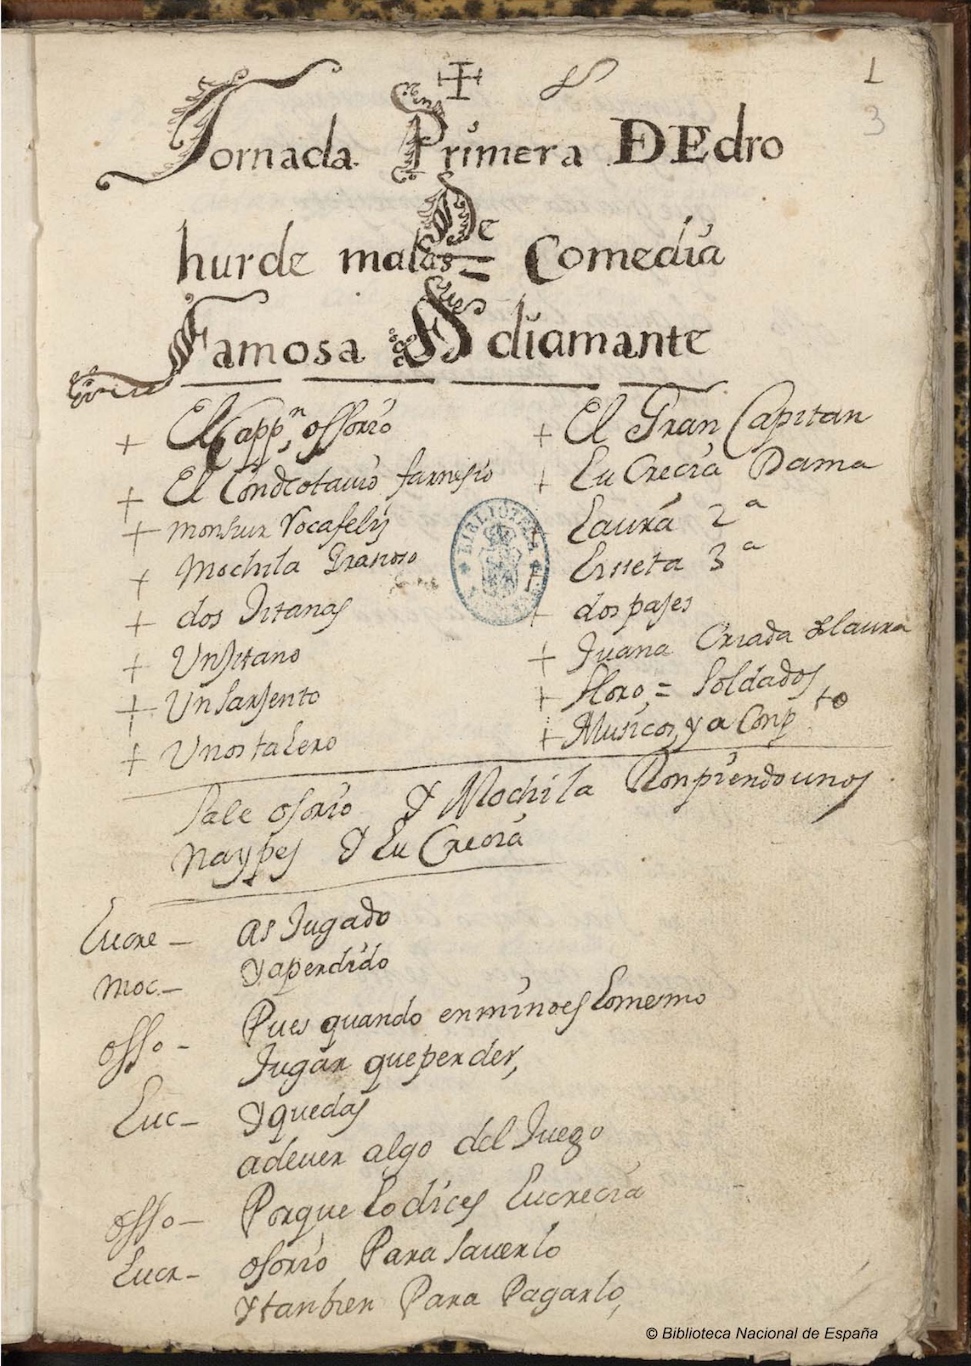 1
3
Jornada Primera DE Pedro
De
hurde malas = Comedia
Famosa De diamante
+ El Cappn, ossorio
+ El Condeotavio farnesio
+ monsiur Rocafelis
+ Mochila Grasioso
+ dos Jitanas
+ Un Jitano
+ Un Sarjento
+ Un ostalero
+ El Gran Capitan
+ Lu Crecia Dama
Laura 2ª
+ 3ª
+ dos pajes
+ Juana Criada de laura
+ floro, = Soldados
+ Musicos, y a Conpto
Sale osorio Y Mochila Ronpiendo unos
naypes Y Lu Crecia
Lucre – as Jugado
moc. – Y a perdido
osso – Pues quando en mi no es Lo mesmo
Jugar que perder,
Luc – Y quedas
a dever algo del Juego
osso – Porque Lo dices Lucrecia
Lucr – osorio Para Saverlo
Y tanbien Para Pagarlo,
BIBLIOTECA
© Biblioteca Nacional de España